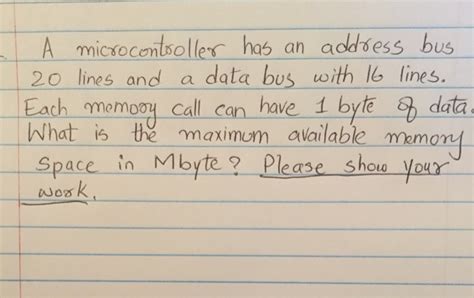 A microcontroller has an address bus
20 lines and a data bus with 16 lines.
Each memory call can have 1 byte of data.
What is the maximum available memory
space in Mbyte? Please show your
work.